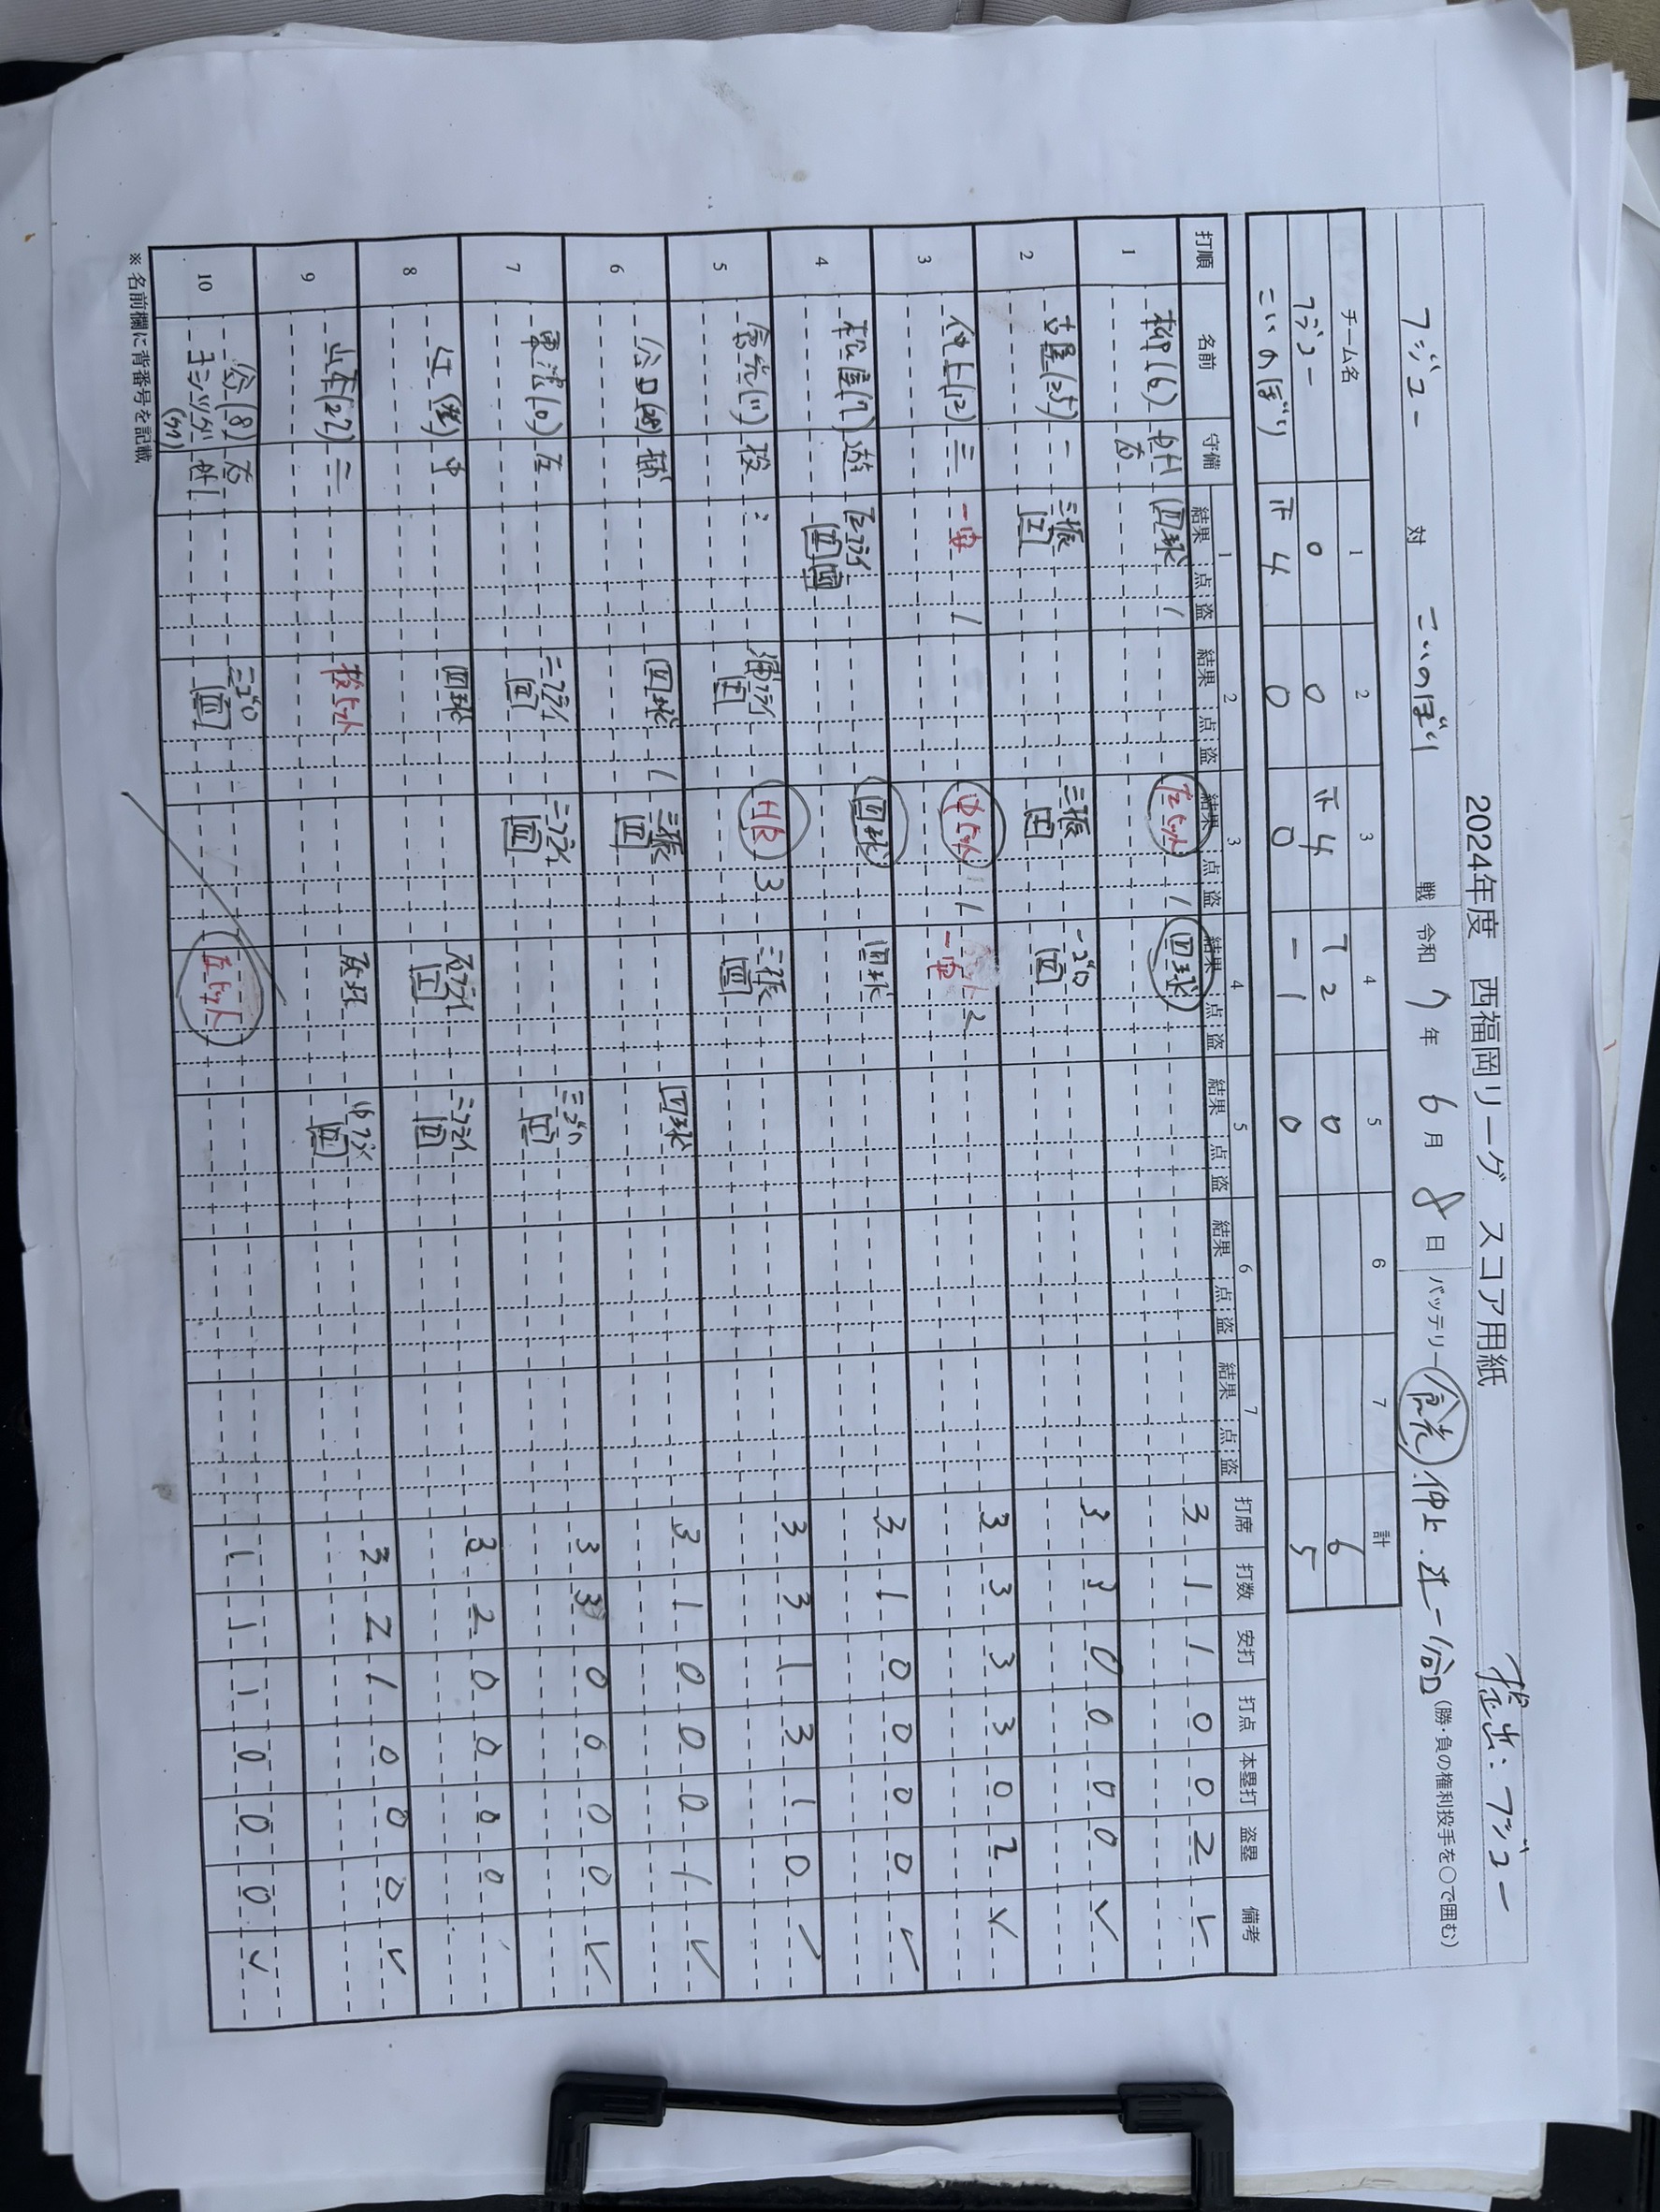 2024年度 西福岡リーグ スコア用紙 提出:フジユー
フジユー 対 こいのぼり 戦 令和 7 年 6 月 8 日 バッテリー 仲上 (勝・負の権利投手を○で囲む)
チーム名 1 2 3 4 5 6 7 計
フジユー 0 0 下4 72 0 6
こいのぼり 下4 0 0 一1 0 5
打順 名前 守備 1 2 3 4 5 6 7 打席 打数 安打 打点 本塁打 盗塁 備考
結果 点 盗 結果 点 盗 結果 点 盗 結果 点 盗 結果 点 盗 結果 点 盗 結果 点 盗
1 柳(6) 右 四球 1 左ヒット 1 四球 3 1 1 0 0 2 レ
2 古屋(25) 一 三振 三振 一ゴロ 3 3 0 0 0 0 レ
3 仲上(12) 三 一安 1 中ヒット 1 1 一安 2 3 3 3 3 0 2 レ
4 松屋(7) 遊 左フライ 四球 四球 3 1 0 0 0 0 レ
5 (11) 投 遊フライ HR 3 三振 3 3 1 3 1 0 レ
6 (28) 捕 四球 1 三振 四球 3 1 0 0 0 1 レ
7 (0) 左 二フライ 二フライ 三ゴロ 3 3 0 0 0 0 レ
8 辻 中 四球 右フライ 二フライ 3 2 0 0 0 0
9 (27) 二 投ヒット 死球 中フライ 3 2 1 0 0 0 レ
10 (8) 右 三ゴロ
左ヒット 1 1 1 0 0 0 レ
※名前欄に背番号を記載